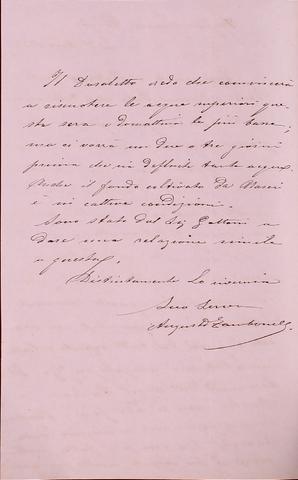 Il Dosoletto credo che comincerà
a riscuotere le acque superiori que
sta sera o domattina le più basse;
ma ci vorrà un due o tre giorni
prima che si defluite tante acque.
Anche il fondo coltivato da
è in cattive condizioni.
Sono stato dal Sig
dare una relazione simile
a questa.
Distintamente La riverisco
Suo Servo
Augusto